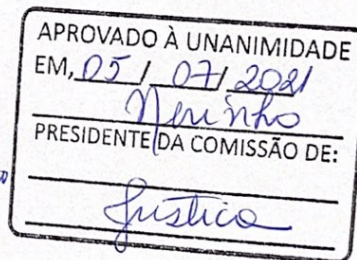 APROVADO À UNANIMIDADE
EM, 05 / 07 / 2021
Nerinho
PRESIDENTE DA COMISSÃO DE:
Justica